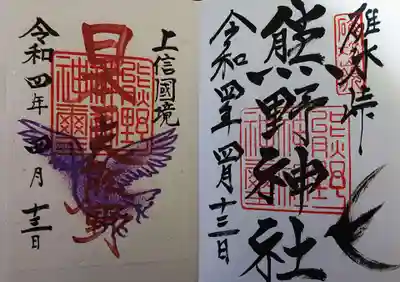 碓氷峠
熊野神社
令和四年四月十三日
上信國境
日本三熊野
令和四年四月十三日